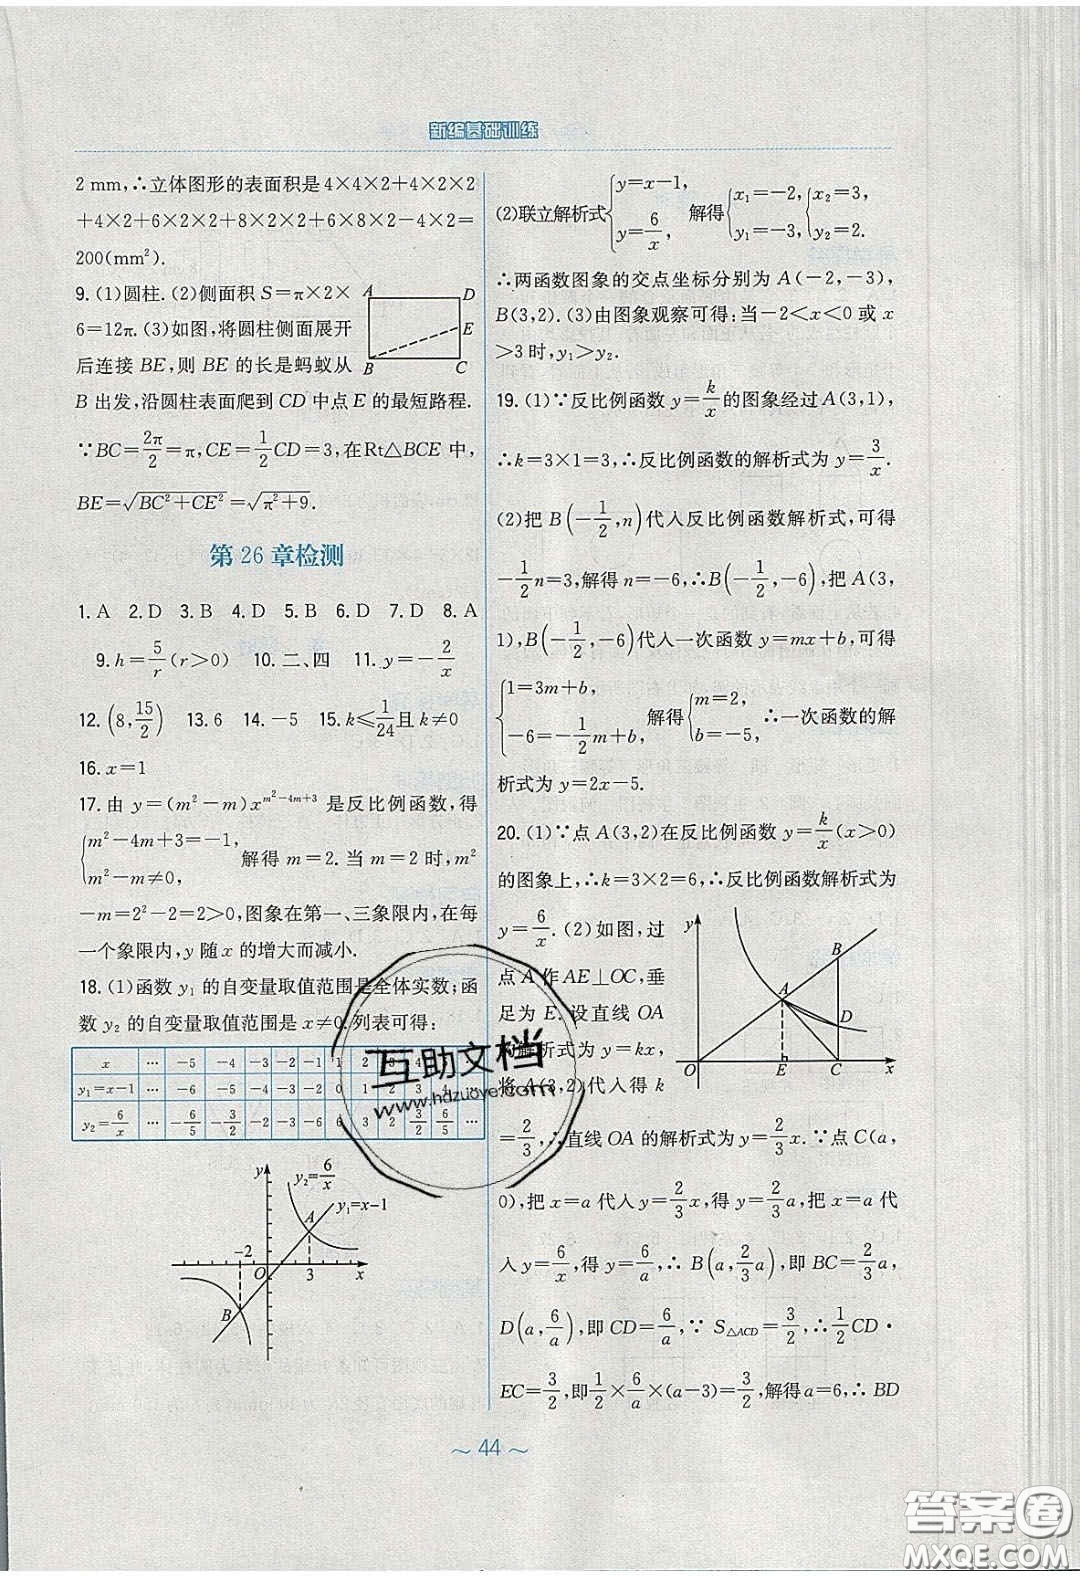 新编基础训练
2 mm,∴立体图形的表面积是4×4×2+4×2×2
+4×2+6×2×2+8×2×2+6×8×2-4×2=
200(mm²).
9.(1)圆柱.(2)侧面积 S=π×2×
6=12π.(3)如图,将圆柱侧面展开
后连接 BE,则 BE 的长是蚂蚁从
B 出发,沿圆柱表面爬到 CD 中点 E 的最短路程.
∵BC=2π/2=π,CE=1/2CD=3,在Rt△BCE 中,
BE=√(BC²+CE²)=√(π²+9).
A D
E
B C
第 26 章检测
1. A 2. D 3. B 4. D 5. B 6. D 7. D 8. A
9. h=5/r(r>0) 10. 二、四 11. y=-2/x
12. (8,15/2) 13. 6 14. -5 15. k≤1/24且 k≠0
16. x=1
17. 由 y=(m²-m)x^(m²-4m+3) 是反比例函数,得
{m²-4m+3=-1, m²-m≠0, 解得 m=2. 当 m=2 时,m²
-m=2²-2=2>0,图象在第一、三象限内,在每
一个象限内,y 随 x 的增大而减小.
18.(1)函数 y₁ 的自变量取值范围是全体实数;函
数 y₂ 的自变量取值范围是 x≠0.列表可得:
x … -5 -4 -3 -2 -1 1 2 3 4 5 …
y₁=x-1 … -6 -5 -4 -3 -2 0 1 2 3 4 …
y₂=6/x … -6/5 -3/2 -2 -3 -6 6 3 2 3/2 6/5 …
y y₂=6/x y₁=x-1
A
-2 O 3 x
B
(2)联立解析式{y=x-1, y=6/x, 解得{x₁=-2, y₁=-3, {x₂=3, y₂=2.
∴两函数图象的交点坐标分别为 A(-2,-3),
B(3,2).(3)由图象观察可得:当-2<x<0 或 x
>3 时,y₁>y₂.
19.(1)∵反比例函数 y=k/x的图象经过A(3,1),
∴k=3×1=3,∴反比例函数的解析式为 y=3/x.
(2)把 B(-1/2,n)代入反比例函数解析式,可得
-1/2n=3,解得 n=-6,∴B(-1/2,-6),把 A(3,
1),B(-1/2,-6)代入一次函数 y=mx+b,可得
{1=3m+b, -6=-1/2m+b, 解得{m=2, b=-5, ∴一次函数的解
析式为 y=2x-5.
20.(1)∵点 A(3,2)在反比例函数 y=k/x(x>0)
的图象上,∴k=3×2=6,∴反比例函数解析式为
y=6/x.(2)如图,过
点 A 作 AE⊥OC,垂
足为 E.设直线 OA
的解析式为 y=kx,
将 A(3,2)代入得 k
y B
A
D
O E C x
=2/3,∴直线 OA 的解析式为 y=2/3x.∵点 C(a,
0),把 x=a 代入 y=2/3x,得 y=2/3a,把 x=a 代
入 y=6/x,得 y=6/a,∴ B(a,2/3a),即 BC=2/3a,
D(a,6/a),即 CD=6/a,∵ S△ACD=3/2,∴1/2CD·
EC=3/2,即1/2×6/a×(a-3)=3/2,解得 a=6,∴ BD
～ 44 ～
互助文档
www.hdzuoye.com
答案圈
MXQE.COM